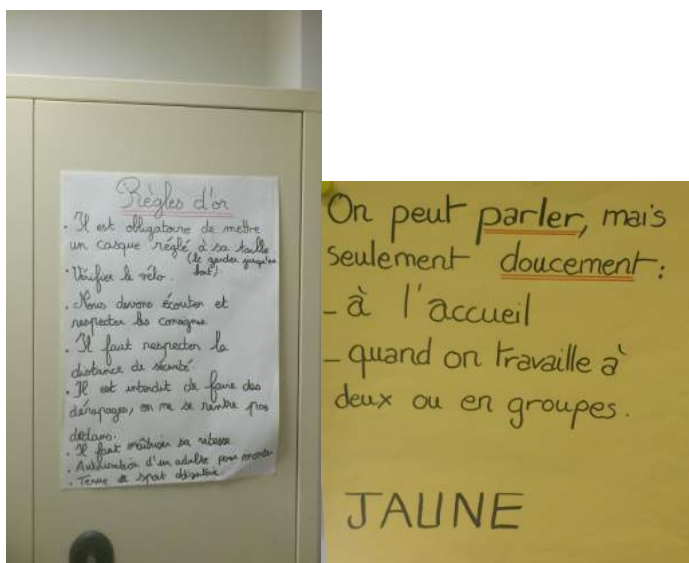 Règles d'or
. Il est obligatoire de mettre
un casque réglé à sa taille
(le garder jusqu'au
bout)
. Vérifier le vélo.
. Nous devons écouter et
respecter les consignes
. Il faut respecter la
distance de sécurité.
. Il est interdit de faire des
dérapages, on ne se rentre pas
dedans.
. Il faut maîtriser sa vitesse
. Autorisation d'un adulte pour
. Tenue de sport obligatoire
On peut parler, mais
seulement doucement :
- à l'accueil
- quand on travaille à
deux ou en groupes.
JAUNE